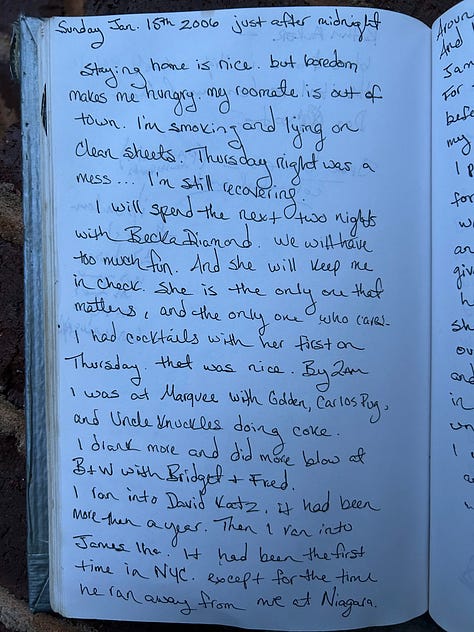 Sunday Jan. 15th 2006 just after midnight
Staying home is nice. but boredom
makes me hungry. my roomate is out of
town. I'm smoking and lying on
clean sheets. Thursday night was a
mess... I'm still recovering.
I will spend the next two nights
with Becka Diamond. We will have
too much fun. And she will keep me
in check. She is the only one that
matters, and the only one who cares.
I had cocktails with her first on
Thursday. that was nice. By 2am
I was at Marquee with Golden, Carlos Pug,
and Uncle Knuckles doing coke.
I drank more and did more blow at
B+W with Bridget + Fred.
I ran into David Katz. it had been
more then a year. Then I ran into
James Iha. It had been the first
time in NYC. except for the time
he ran away from me at Niagara.
Aroun
And
Jam
For
befo
my
I p
for
w
an
giv
h
sh
ou
and
in
un
I